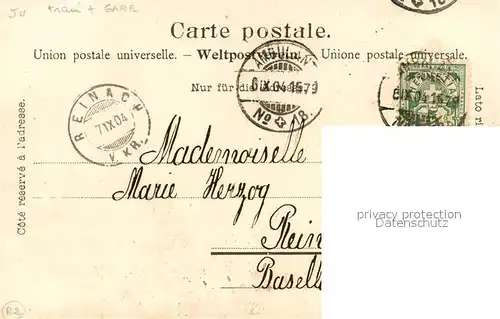 Ju train + GARE
Carte postale.
Union postale universelle. – Weltpostverein. – Unione postale universale.
Nur für die Adresse.
AMBULANT
6 IX 04 1579
No 18
AMBULANT
6 IX 04 1579
REINACH
7 IX 04
Côté réservé à l'adresse.
Mademoiselle
Marie Herzog
Rein
Basell
privacy protection
Datenschutz
R2